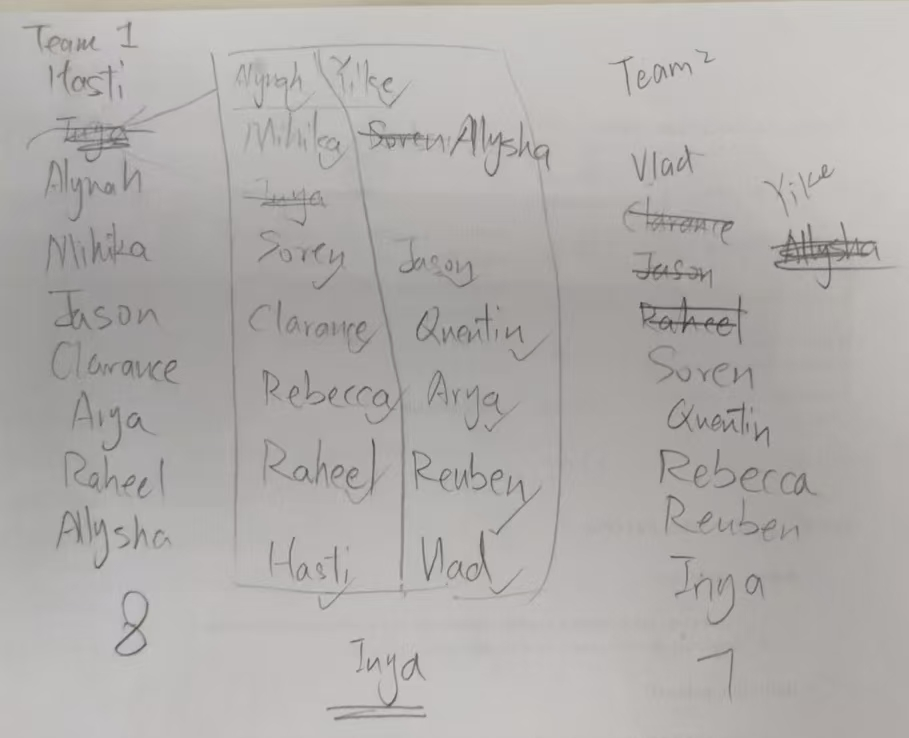 Team 1
Hasti
Inya
Alynah
Mihika
Jason
Clarance
Arya
Raheel
Allysha
8
Alynah Yike
Mihika Soren Allysha
Inya
Sorey Jason
Clarance Quentin
Rebecca Arya
Raheel Reuben
Hasti Vlad
Inya
Team 2
Vlad
Clarance
Jason
Raheel
Soren
Quentin
Rebecca
Reuben
Inya
7
Yike
Allysha